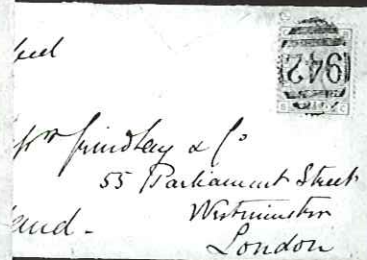 942
Grindlay & Co
55 Parliament Street
Westminster
London